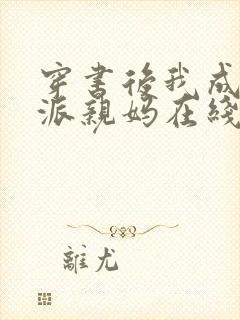 穿書後我成
派親媽在綫
離尤